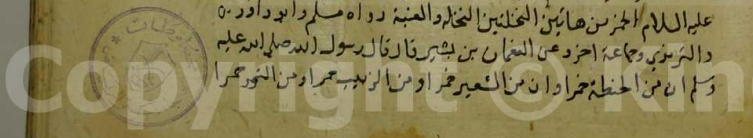 عليه السلام الخمر من هاتين النخلتين النخلة والعنبة رواه مسلم وابو داود
والترمذي وجماعة اخر وعن النعمان بن بشير قال قال رسول الله صلى الله عليه
وسلم ان من الحنطة خمرا وان من الشعير خمرا ومن الزبيب خمرا ومن التمر خمرا
Copyright © Kin